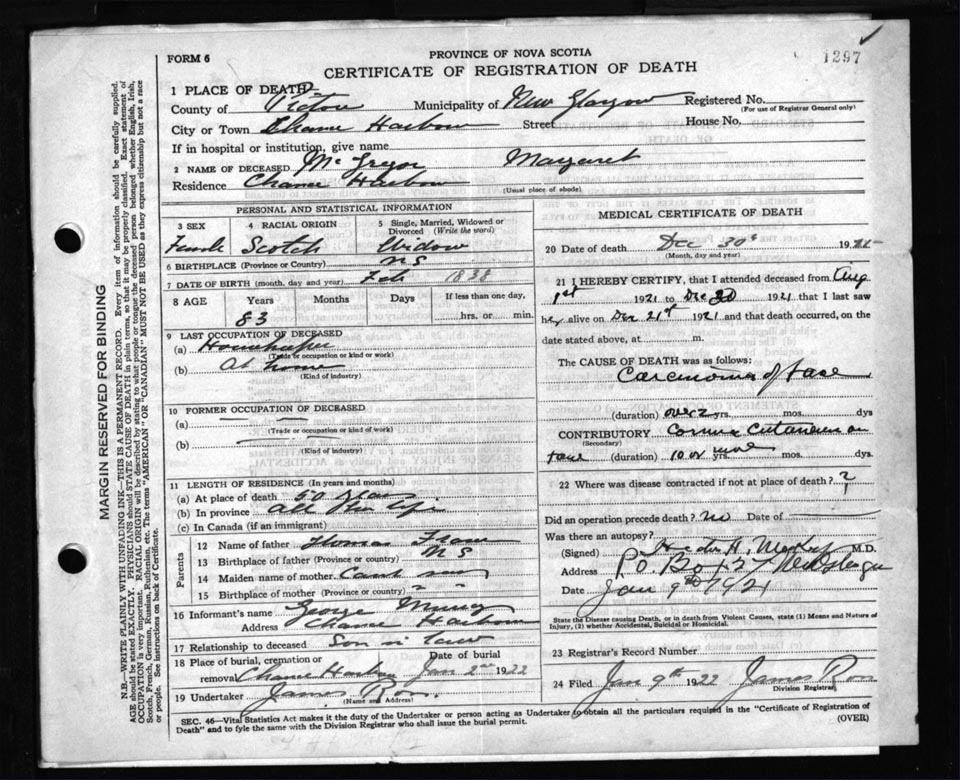 1297
FORM 6
PROVINCE OF NOVA SCOTIA
CERTIFICATE OF REGISTRATION OF DEATH
1 PLACE OF DEATH—
County of Pictou Municipality of New Glasgow Registered No.
(For use of Registrar General only)
City or Town Chance Harbour Street House No.
If in hospital or institution, give name
2 NAME OF DECEASED McGregor Margaret
Residence Chance Harbour
(Usual place of abode)
PERSONAL AND STATISTICAL INFORMATION
3 SEX 4 RACIAL ORIGIN 5 Single, Married, Widowed or Divorced (Write the word)
Female Scotch Widow
6 BIRTHPLACE (Province or Country) N S
7 DATE OF BIRTH (month, day, and year) Feb 1838
8 AGE Years Months Days If less than one day,
83 hrs. or min.
9 LAST OCCUPATION OF DECEASED
(a) Housekeeper
(Trade or occupation or kind or work)
(b) At home
(Kind of industry)
10 FORMER OCCUPATION OF DECEASED
(a)
(Trade or occupation or kind of work)
(b)
(Kind of industry)
11 LENGTH OF RESIDENCE (In years and months)
(a) At place of death 50 years
(b) In province all her life
(c) In Canada (if an immigrant)
Parents
12 Name of father Thomas
13 Birthplace of father (Province or country) N S
14 Maiden name of mother Cant say
15 Birthplace of mother (Province or country) ?
16 Informant's name George Murray
Address Chance Harbour
17 Relationship to deceased Son in law
18 Place of burial, cremation or removal Chance Harbour Date of burial Jan 2nd 1922
19 Undertaker James Ron
(Name and Address)
MEDICAL CERTIFICATE OF DEATH
20 Date of death Dec 30th 1921
(Month, day and year)
21 I HEREBY CERTIFY, that I attended deceased from Aug
1st 1921 to Dec 30 1921 that I last saw
her alive on Dec 21st 1921 and that death occurred, on the
date stated above, at m.
The CAUSE OF DEATH was as follows:
Carcinoma of face
(duration) over 2 yrs. mos. dys
CONTRIBUTORY Cornu Cutaneum on
(Secondary)
face (duration) 10 or more yrs. mos. dys.
22 Where was disease contracted if not at place of death? ?
Did an operation precede death? no Date of
Was there an autopsy?
(Signed) H. M.D.
Address P.O. Box New Glasgow
Date Jan 9th 1921
State the Disease causing Death, or in death from Violent Causes, state (1) Means and Nature of
Injury, (2) whether Accidental, Suicidal or Homicidal.
23 Registrar's Record Number
24 Filed Jan 9th 1922 James Ron
Division Registrar
SEC. 46—Vital Statistics Act makes it the duty of the Undertaker or person acting as Undertaker to obtain all the particulars required in the "Certificate of Registration of
Death" and to fyle the same with the Division Registrar who shall issue the burial permit.
(OVER)
MARGIN RESERVED FOR BINDING
N.B.—WRITE PLAINLY WITH UNFADING INK—THIS IS A PERMANENT RECORD. Every item of information should be carefully supplied.
AGE should be stated EXACTLY. PHYSICIANS should STATE CAUSE OF DEATH in plain terms, so that it may be properly classified. Exact statement of
OCCUPATION is very important. RACIAL ORIGIN will be described by stating to what people or tongue the deceased person belonged whether English, Irish,
Scotch, French, German, Russian, Ruthenian, etc. The terms "AMERICAN" OR "CANADIAN" MUST NOT BE USED as they express citizenship but not a race
or people. See instructions on back of Certificate.